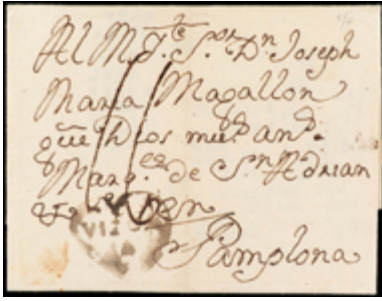 Al M Jte. Sor. Dn. Joseph
Maria Magallon
que Dios mus. ans.
Marqs. de Sn. Adrian
&c. en
Pamplona